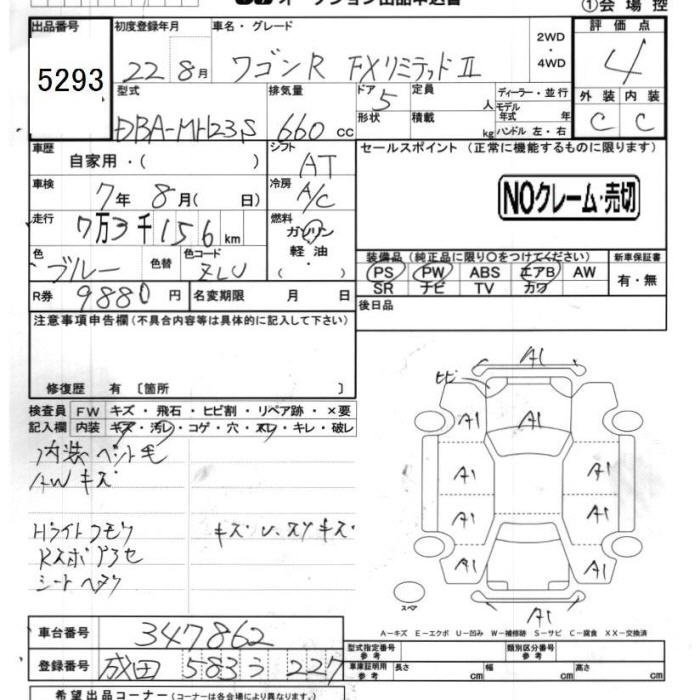 オークション出品申込書
①会場控
出品番号 初度登録年月 車名・グレード 2WD・4WD 評価点
5293 22 8月 ワゴンR FXリミテッドⅡ 4
型式 排気量 ドア 5 定員 人 ディーラー・並行 外装 内装
DBA-MH23S 660cc 形状 積載 kg モデル年式 年 ハンドル 左・右 C C
車歴 自家用・( ) シフト AT セールスポイント (正常に機能するものに限ります)
車検 7年8月( 日) 冷房 A/C NOクレーム・売切
走行 7万3千156km 燃料 ガソリン・軽油・
色 ブルー 色替 色コード ZLU 装備品 (純正品に限り○をつけてください) 新車保証書
PS PW ABS エアB AW 有・無
SR ナビ TV カワ
R券 9880円 名変期限 月 日 後日品
注意事項申告欄 (不具合内容等は具体的に記入して下さい)
修復歴 有 〔箇所 〕
検査員 FW キズ・飛石・ヒビ割・リペア跡・×要
記入欄 内装 キズ・汚レ・コゲ・穴・スレ・キレ・破レ
内装ペット毛
AWキズ
Hライトクモリ キズ U、スリキズ
シートヘタリ
A1
ヒビ
A1 A1 A1
A1 A1
A1 A1
A1 A1
A1
スペア
A−キズ E−エクボ U−凹み W−補修跡 S−サビ C−腐食 XX−交換済
車台番号 347862
登録番号 成田 583 う 227
型式指定番号 参考 類別区分番号 参考
車庫証明用 参考 長さ cm 幅 cm 高さ cm
希望出品コーナー (コーナーは各会場により異なります。)